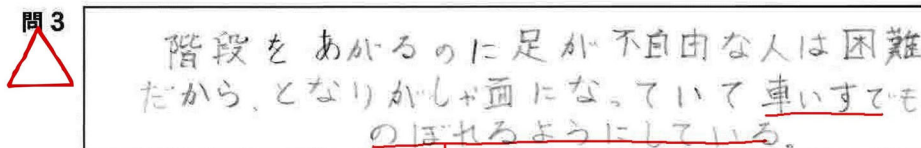 問3
階段をあがるのに足が不自由な人は困難
だから、となりがしゃ面になっていて車いすでも
のぼれるようにしている。